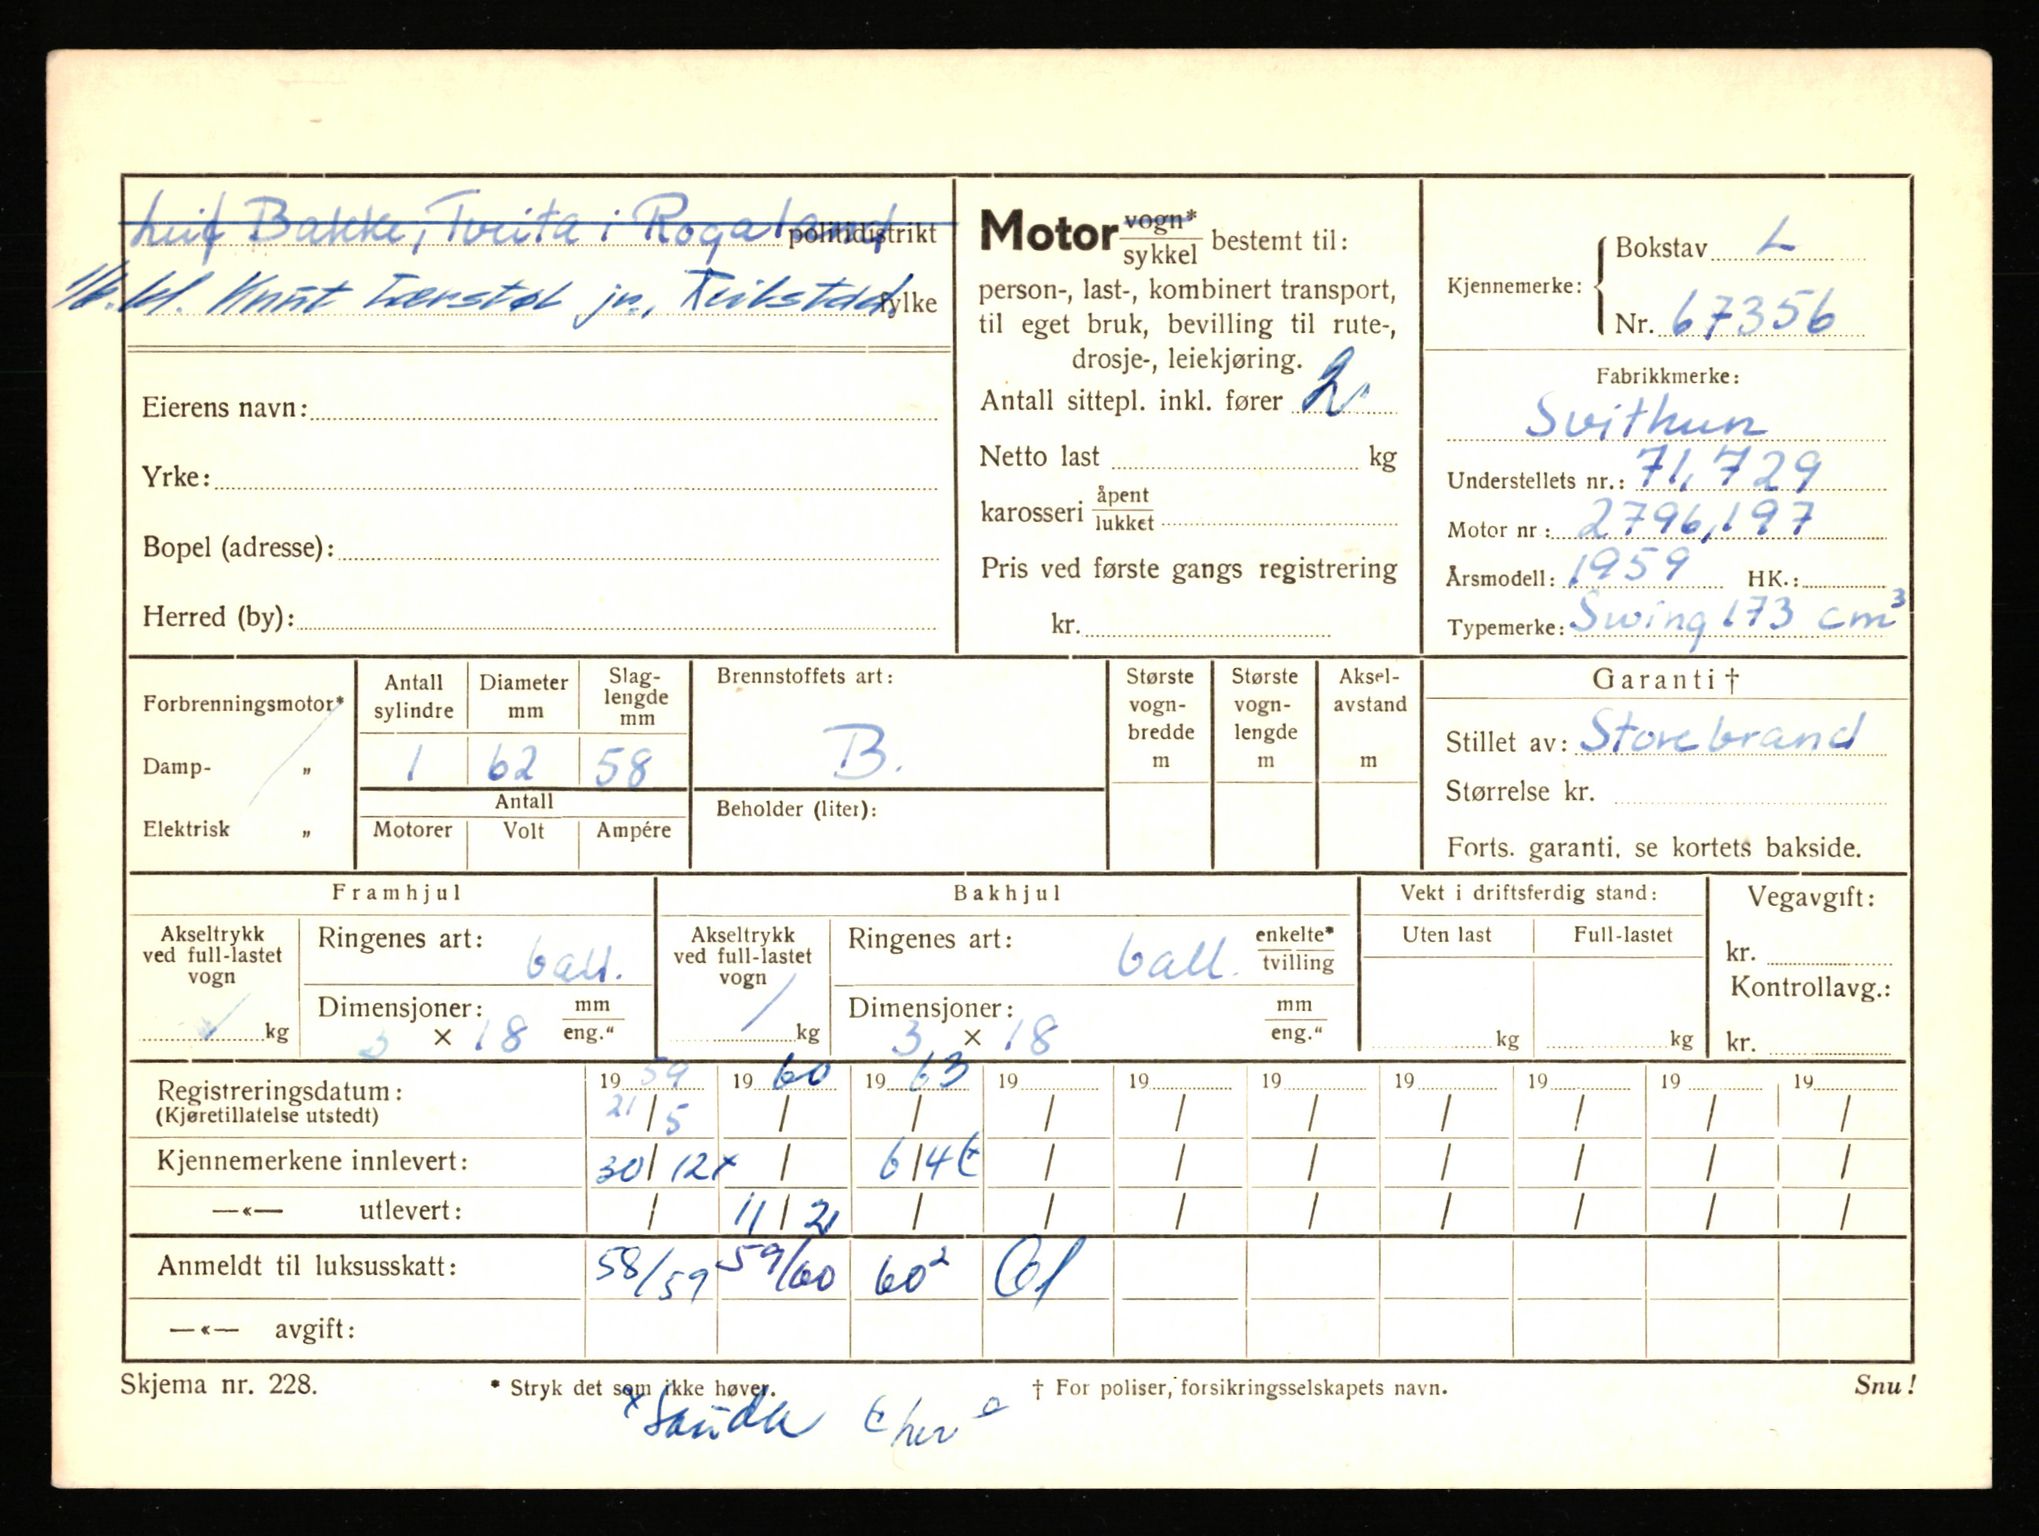 Leif Bakke, Tveita i Rogaland politidistrikt
Knut jr., fylke
Eierens navn:
Yrke:
Bopel (adresse):
Herred (by):
Motor vogn*
sykkel bestemt til:
person-, last-, kombinert transport,
til eget bruk, bevilling til rute-,
drosje-, leiekjøring.
Antall sittepl. inkl. fører 2
Netto last kg
karosseri åpent
lukket
Pris ved første gangs registrering
kr.
Kjennemerke: Bokstav L
Nr. 67356
Fabrikkmerke:
Svithun
Understellets nr.: 71,729
Motor nr: 2796,197
Årsmodell: 1959 HK.:
Typemerke: Swing 173 cm³
Forbrenningsmotor*
Damp- „
Elektrisk „
Antall sylindre
Diameter mm
Slag-lengde mm
1 62 58
Antall
Motorer Volt Ampére
Brennstoffets art:
B.
Beholder (liter):
Største vogn-bredde m
Største vogn-lengde m
Aksel-avstand m
Garanti †
Stillet av: Storebrand
Størrelse kr.
Forts. garanti, se kortets bakside.
Framhjul
Akseltrykk ved full-lastet vogn
kg
Ringenes art: ball.
Dimensjoner: mm
3 × 18 eng."
Bakhjul
Akseltrykk ved full-lastet vogn
kg
Ringenes art: ball. enkelte*
tvilling
Dimensjoner: mm
3 × 18 eng."
Vekt i driftsferdig stand:
Uten last Full-lastet
kg kg
Vegavgift:
kr.
Kontrollavg.:
kr.
Registreringsdatum: 19 59 19 60 19 63 19 19 19 19 19 19 19
(Kjøretillatelse utstedt) 21/5 / / / / / / / / /
Kjennemerkene innlevert: 30/12x / 6/4 / / / / / / /
—«— utlevert: / 11/2 / / / / / / / /
Anmeldt til luksusskatt: 58/59 59/60 60² 61
—«— avgift:
Skjema nr. 228. * Stryk det som ikke høver. † For poliser, forsikringsselskapets navn. Snu!
x Sauda her